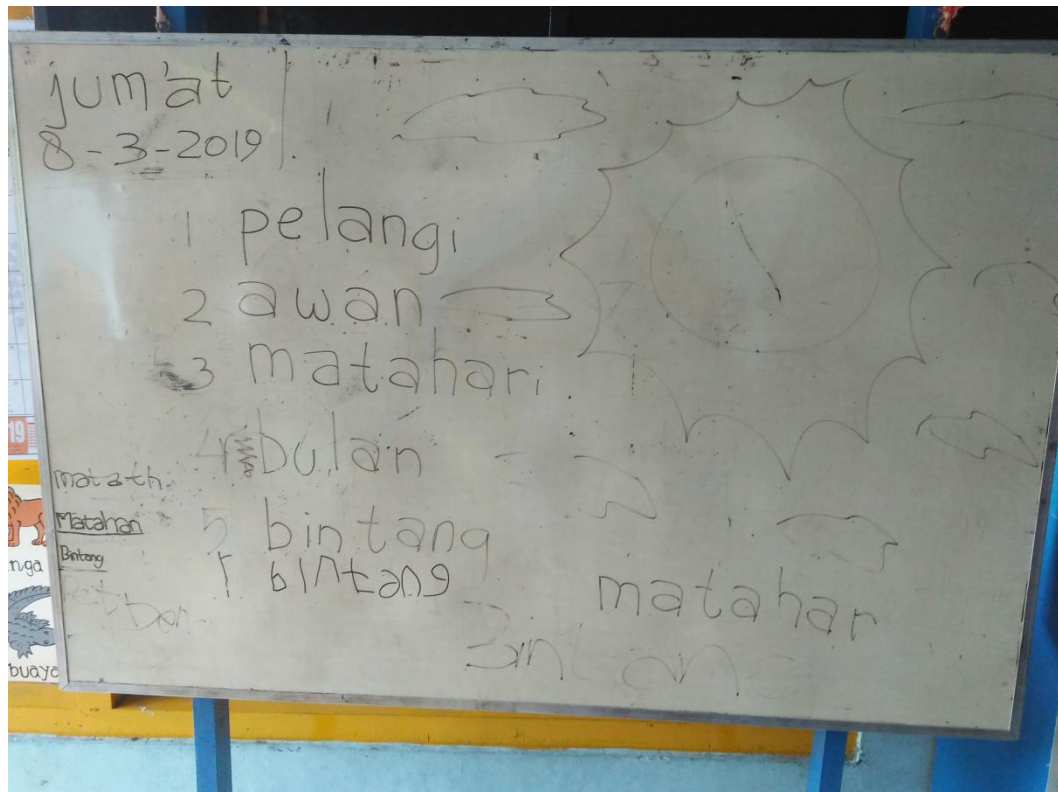 jum'at
8-3-2019
1 pelangi
2 awan
3 matahari
4 bulan
5 bintang
bintang
matath.
Matahari
Bintang
matahar
19
nga
buaya